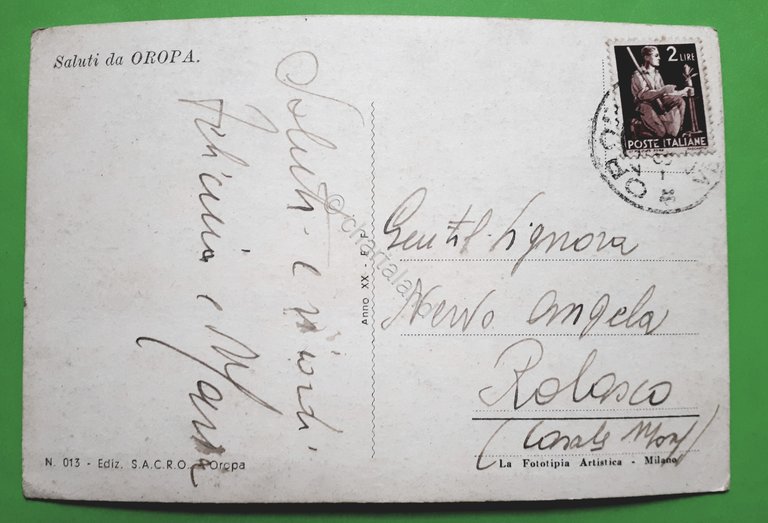 Saluti da OROPA.
Saluti e ricordi
Felicina e Maria
Anno XX E. F.
©chartaland
2 LIRE
POSTE ITALIANE
OROPA
Gentil Signora
Nervo Angela
Rolasco
(Casale Monf)
N. 013 - Ediz. S.A.C.R.O. - Oropa
La Fototipia Artistica - Milano